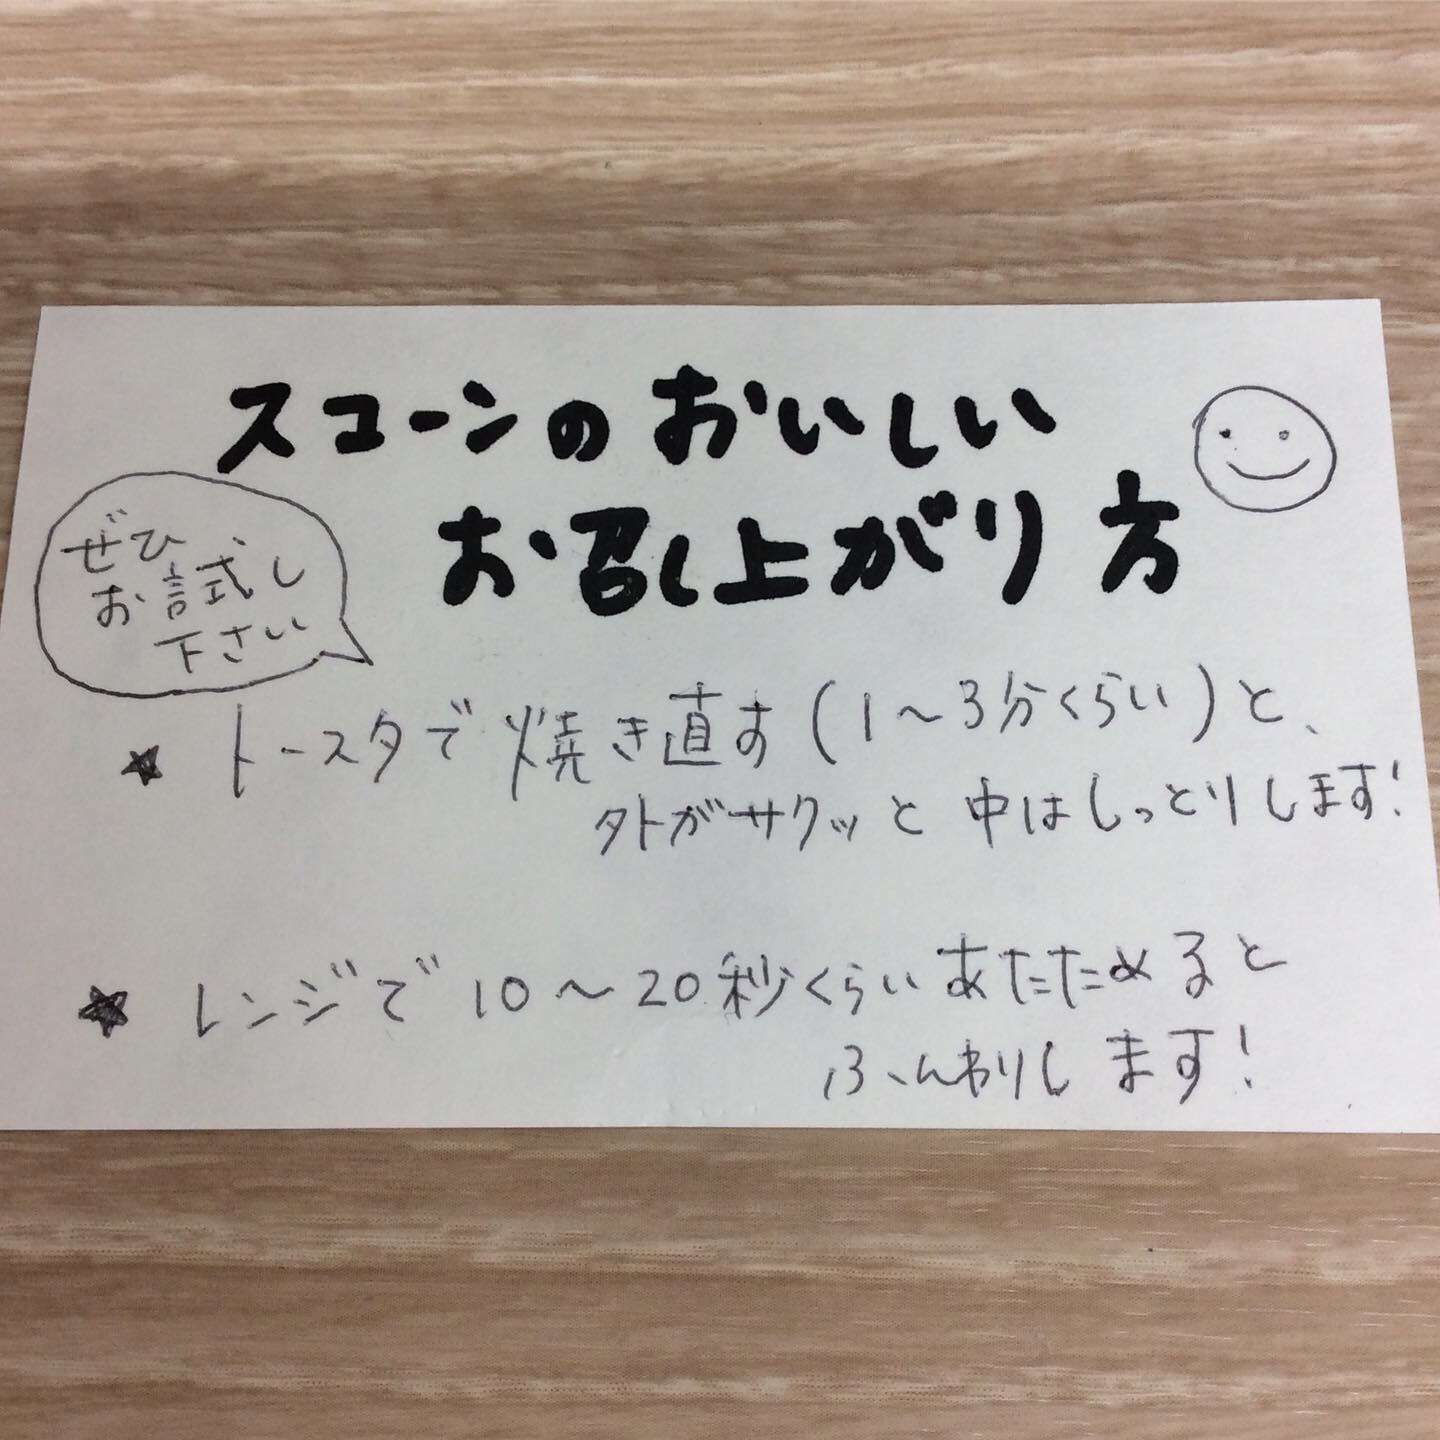 スコーンのおいしい
お召し上がり方
ぜひ
お試し
下さい
★ トースタで焼き直す(1〜3分くらい)と、
外がサクッと中はしっとりします!
★ レンジで10〜20秒くらいあたためると
ふんわりします!